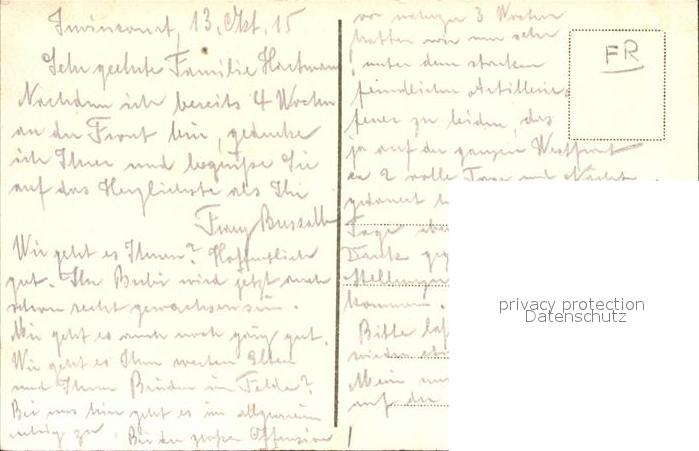 13. Okt. 15
Sehr geehrte Familie Hartmann
Nachdem ich bereits 4 Wochen
an der Front bin, gedenke
ich Ihrer und begrüße Sie
auf das Herzlichste als Ihr
Franz
Wie geht es Ihnen? Hoffentlich
gut. Ihr Bubi wird jetzt auch
schon recht gewachsen sein.
Mir geht es auch noch ganz gut.
Wie geht es Ihren werten Eltern
und Ihrem Bruder im Felde?
Bei uns hier geht es im allgemeinen
ruhig zu. Bei der großen Offensive
vor 3 Wochen
hatten wir nun sehr
unter dem starken
feindlichen Artillerie
feuer zu leiden, das
ja auf der ganzen Westfront
ca 2 volle Tage und Nächte
gedauert
Tage aber
Dank
Stellungen
kommen.
Bitte
wieder
Mein
auf
FR
privacy protection
Datenschutz